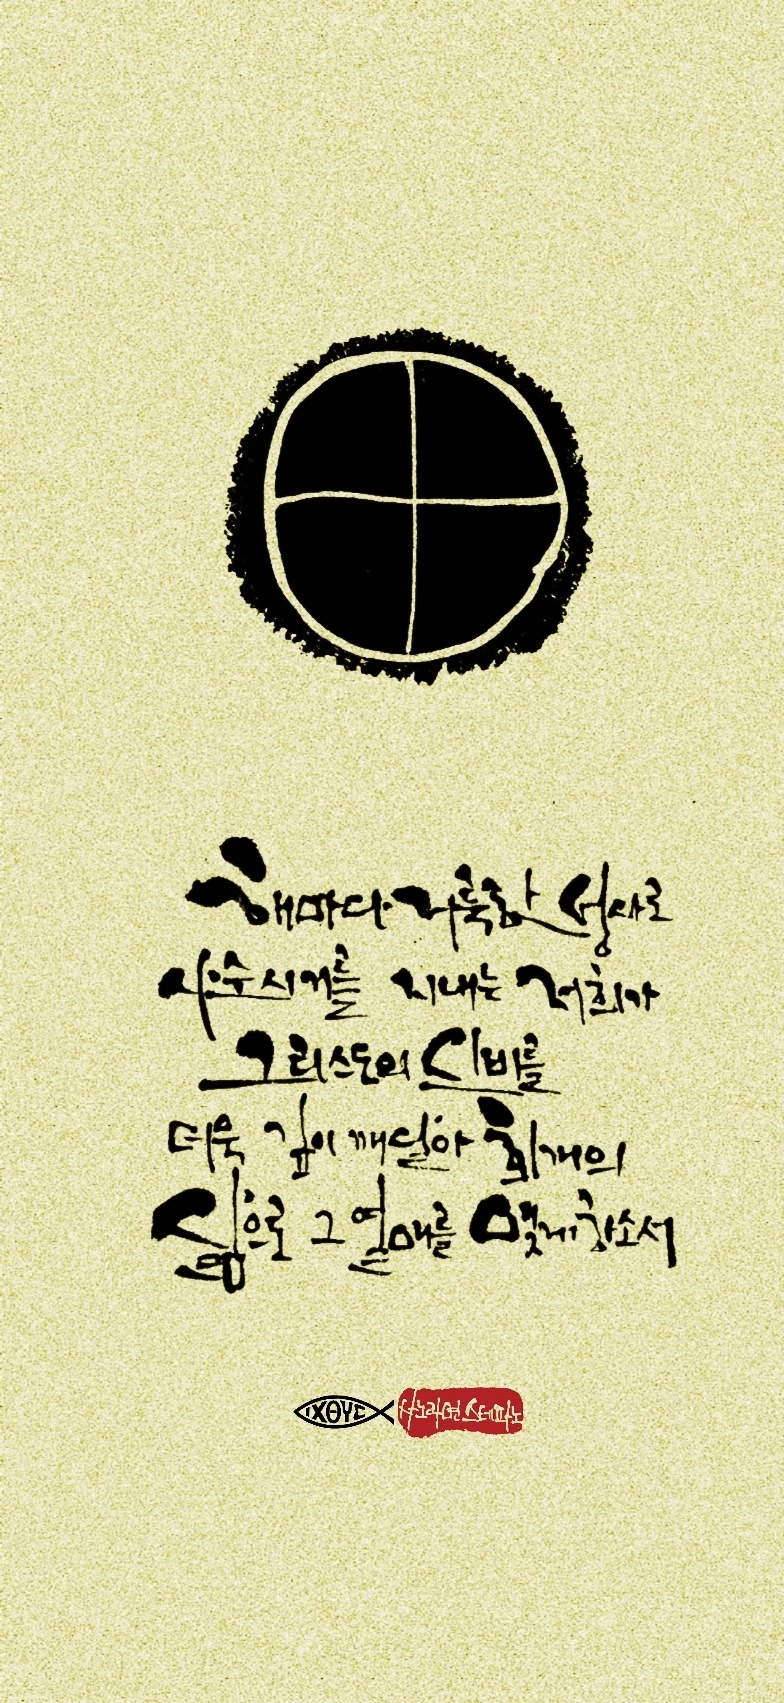 해마다 거룩한 성사로
사순시기를 지내는 저희가
그리스도의 신비를
더욱 깊이 깨달아 회개의
삶으로 그 열매를 맺게하소서
ΙΧΘΥΣ
스테파노